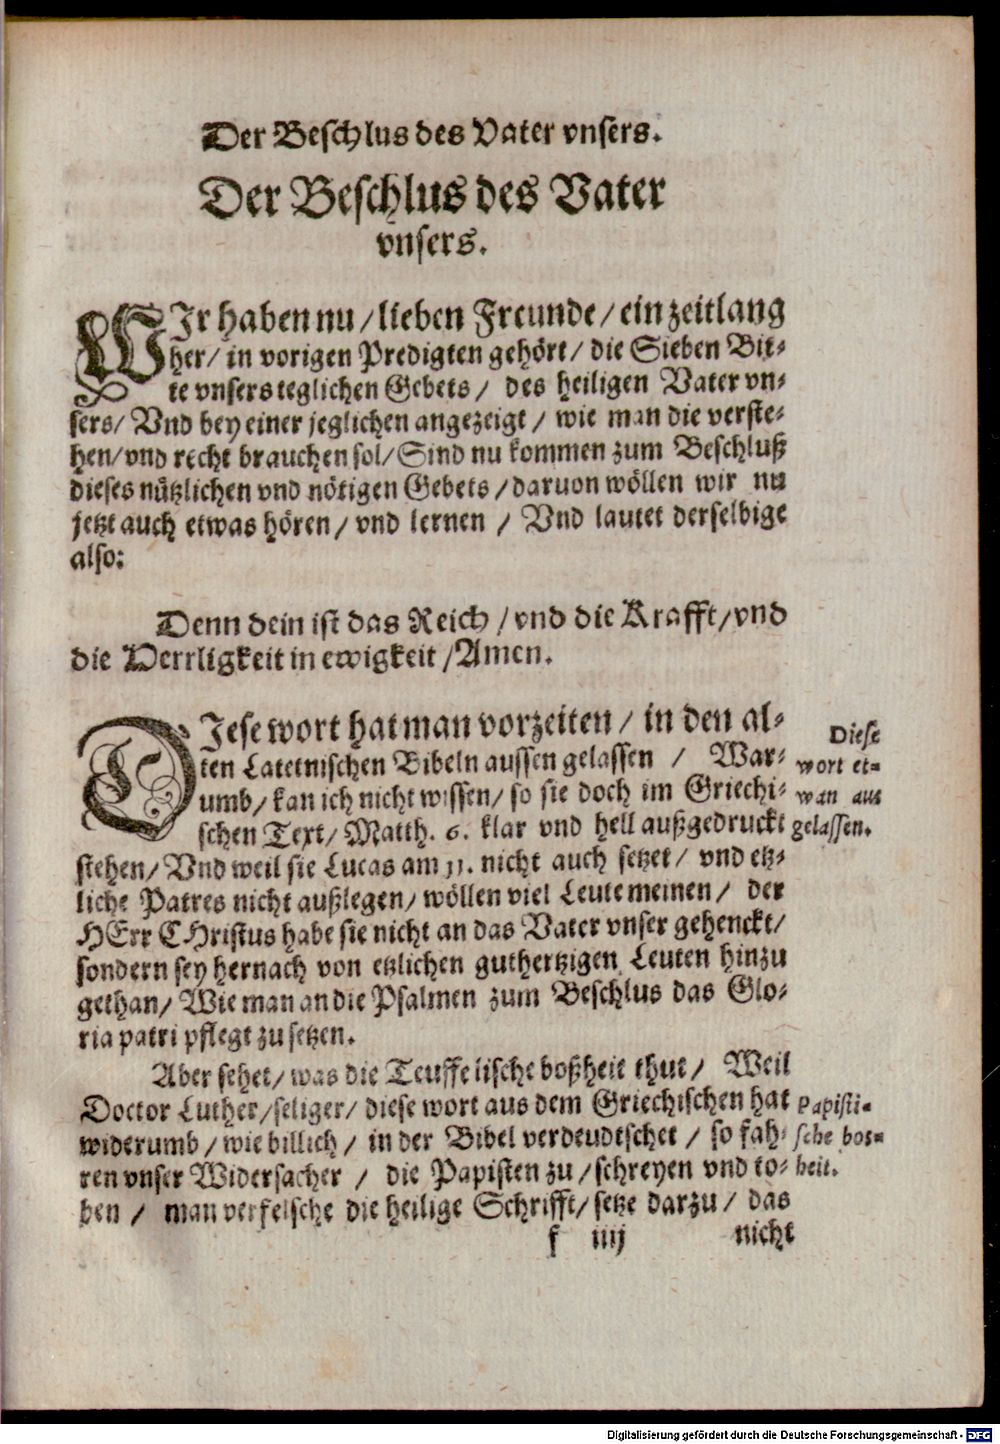 Der Beschlus des Vater vnsers.
Der Beschlus des Vater
vnsers.
WIr haben nu / lieben Freunde / ein zeitlang
her / in vorigen Predigten gehört / die Sieben Bit-
te vnsers teglichen Gebets / des heiligen Vater vn-
sers / Vnd bey einer jeglichen angezeigt / wie man die verste-
hen / vnd recht brauchen sol / Sind nu kommen zum Beschluß
dieses nützlichen vnd nötigen Gebets / daruon wöllen wir nu
jetzt auch etwas hören / vnd lernen / Vnd lautet derselbige
also:
Denn dein ist das Reich / vnd die Krafft / vnd
die Herrligkeit in ewigkeit / Amen.
DIese wort hat man vorzeiten / in den al-
ten Lateinischen Bibeln aussen gelassen / War-
umb / kan ich nicht wissen / so sie doch im Griechi-
schen Text / Matth. 6. klar vnd hell außgedruckt
stehen / Vnd weil sie Lucas am 11. nicht auch setzet / vnd etz-
liche Patres nicht außlegen / wöllen viel Leute meinen / der
HErr CHristus habe sie nicht an das Vater vnser gehenckt /
sondern sey hernach von etzlichen guthertzigen Leuten hinzu
gethan / Wie man an die Psalmen zum Beschlus das Glo-
ria patri pflegt zu setzen.
Diese
wort et-
wan aus
gelassen.
Aber sehet / was die Teuffelische boßheit thut / Weil
Doctor Luther / seliger / diese wort aus dem Griechischen hat
widerumb / wie billich / in der Bibel verdeudtschet / so fah-
ren vnser Widersacher / die Papisten zu / schreyen vnd to-
ben / man verfelsche die heilige Schrifft / setze darzu / das
Papisti-
sche bos-
heit.
f iiij
nicht
Digitalisierung gefördert durch die Deutsche Forschungsgemeinschaft - DFG